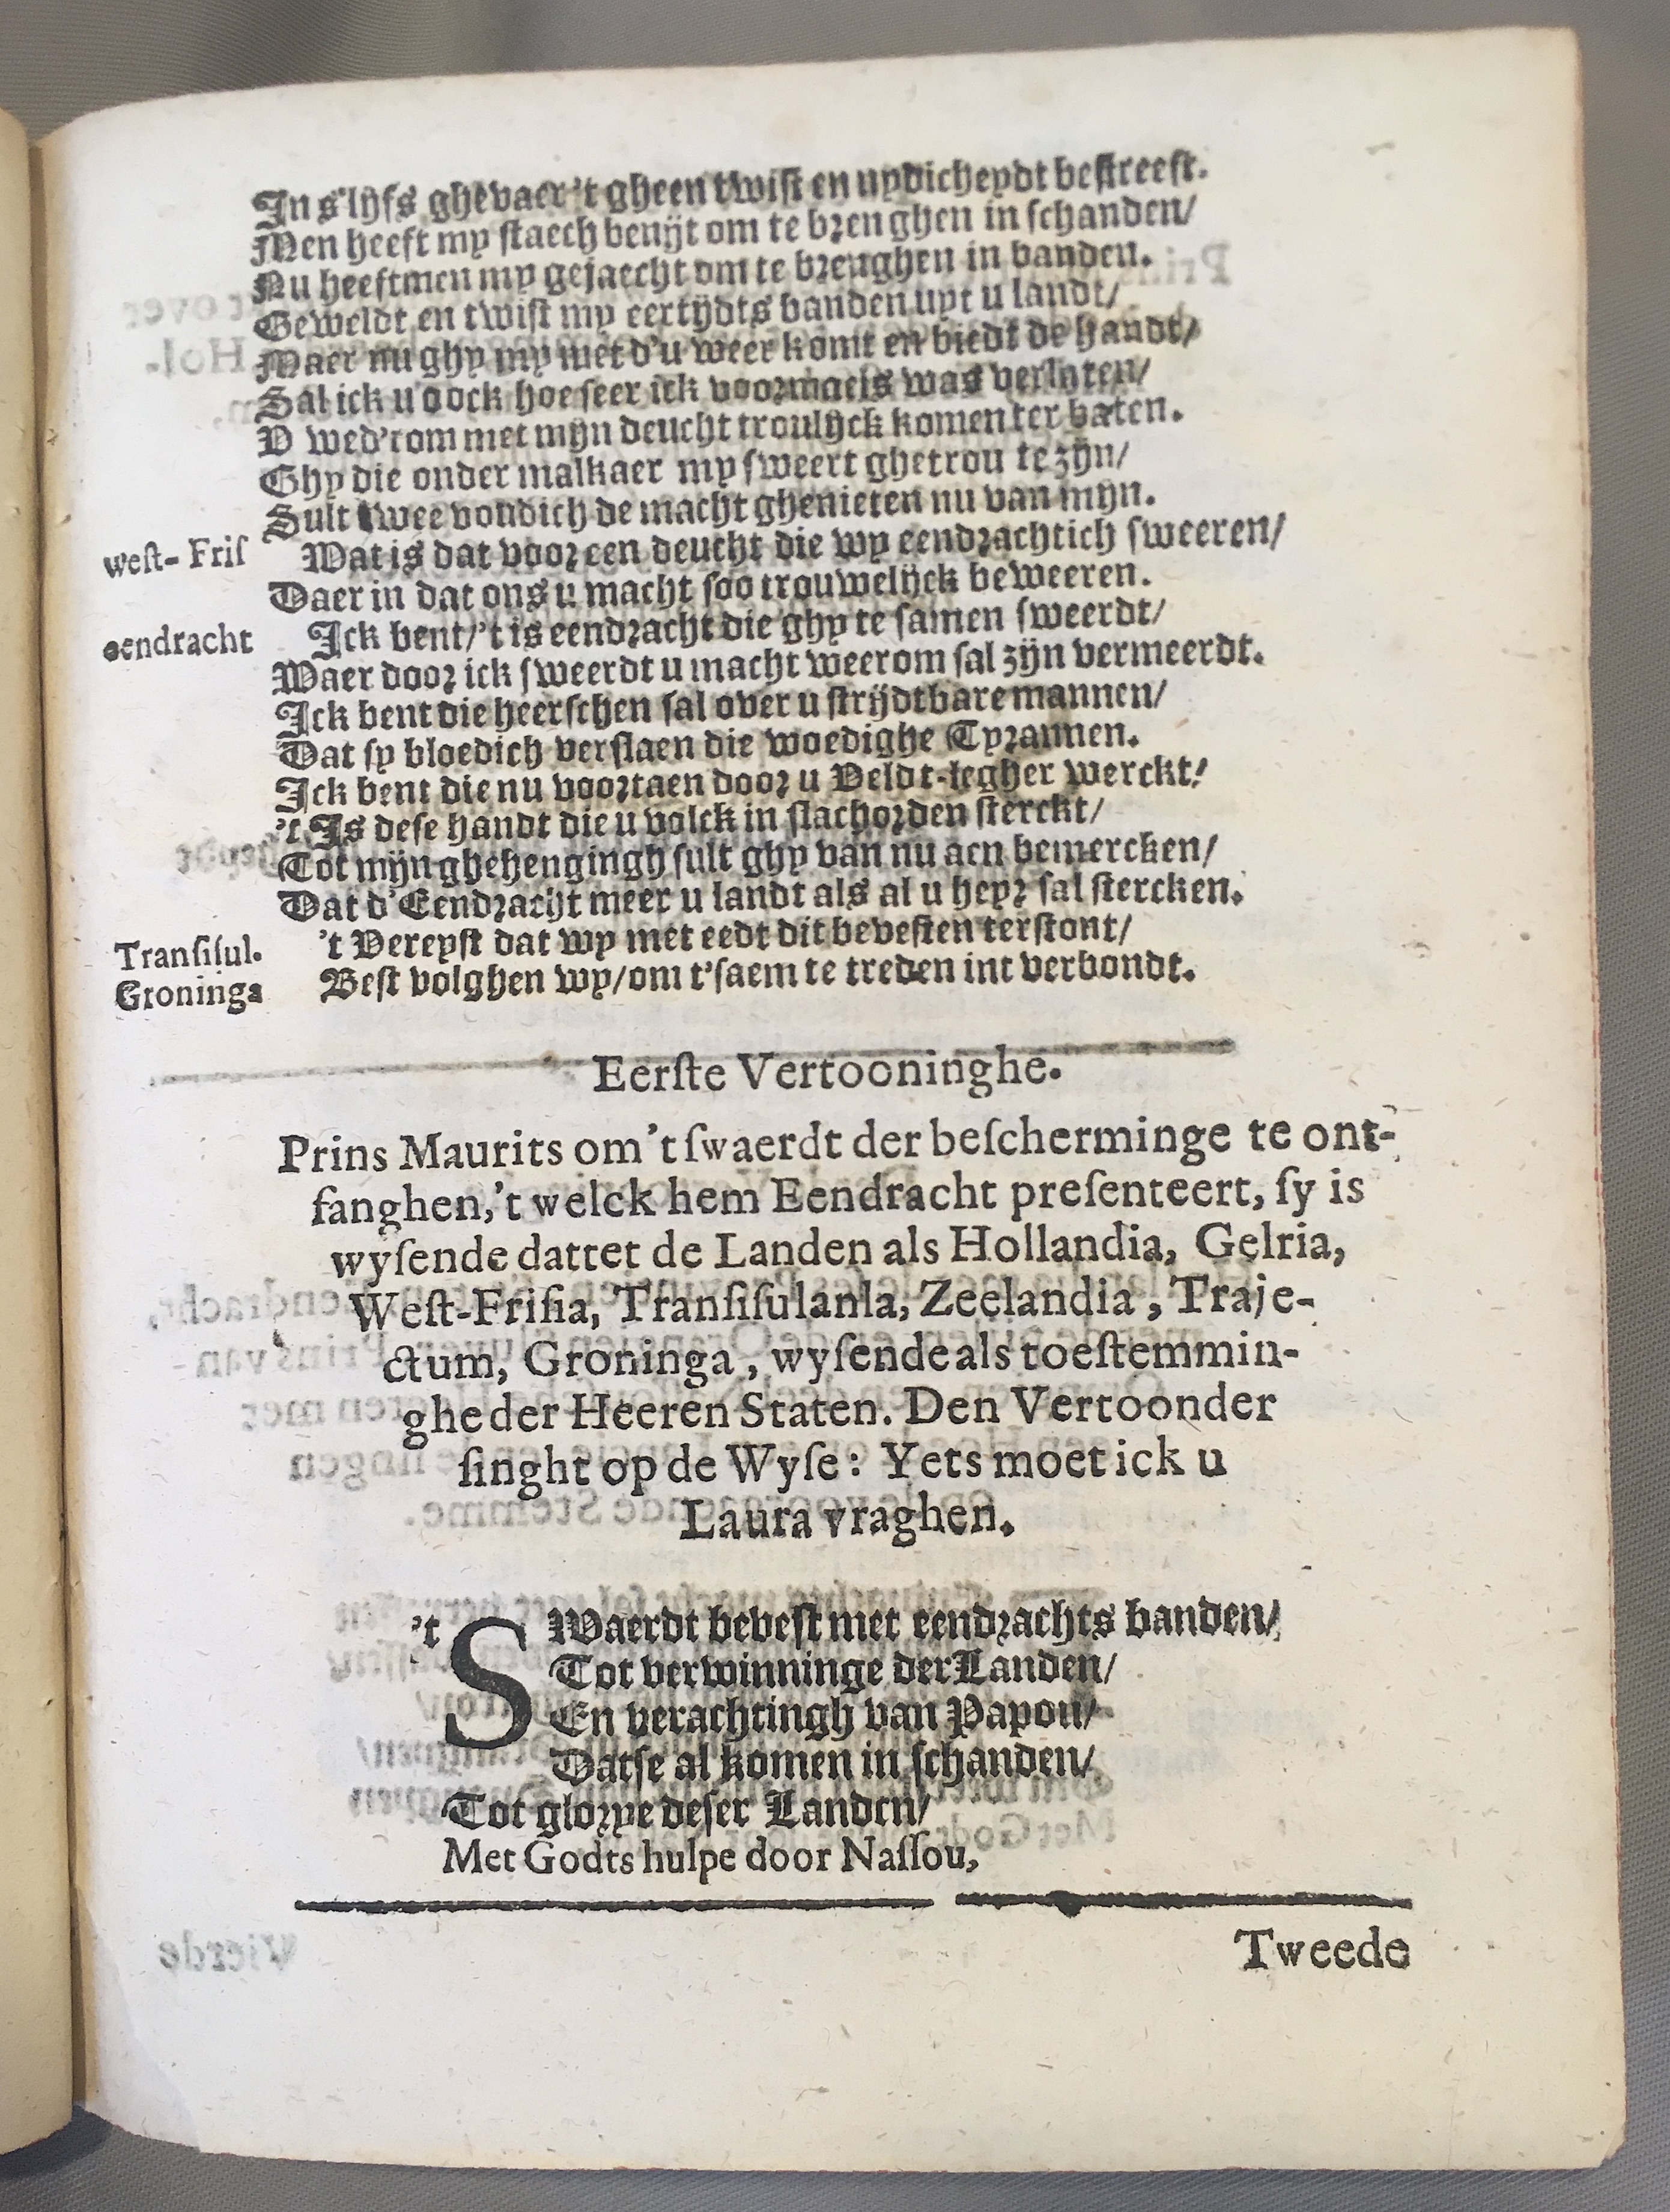 In s'lijfs ghevaer 't gheen twist en nydicheydt bestreest.
Men heeft my staech benijt om te brenghen in schanden/
Nu heeftmen my gejaecht om te brenghen in banden.
Geweldt en twist my eertijdts banden uyt u landt/
Maer nu ghy my met d'u weer komt en biedt de handt/
Sal ick u oock hoe seer ick voormaels was verlaten/
V wed'rom met mijn deucht troulijck komen ter baten.
Ghy die onder malkaer my sweert ghetrou te zijn/
Sult twee voudich de macht ghenieten nu van mijn.
west-Fris Wat is dat voor een deucht die wy eendrachtich sweeren/
Daer in dat ons u macht soo trouwelijck beweeren.
eendracht Ick bent/'t is eendracht die ghy te samen sweerdt/
Waer door ick sweerdt u macht weerom sal zijn vermeerdt.
Ick bent die heerschen sal over u strijdtbare mannen/
Dat sy bloedich verslaen die woedighe Tyrannen.
Ick bent die nu voortaen door u Veldt-legher werckt/
't Is dese handt die u volck in slachorden sterckt/
Tot mijn ghehengingh sult ghy van nu aen bemercken/
Dat d'Eendracht meer u landt als al u heyr sal stercken.
Transisul. 't Vereyst dat wy met eedt dit bevesten terstont/
Groninga Best volghen wy/om t'saem te treden int verbondt.
Eerste Vertooninghe.
Prins Maurits om 't swaerdt der bescherminge te ont-
fanghen,'t welck hem Eendracht presenteert, sy is
wysende dattet de Landen als Hollandia, Gelria,
West-Frisia, Transisulanla, Zeelandia, Traje-
ctum, Groninga, wysende als toestemmin-
ghe der Heeren Staten. Den Vertoonder
singht op de Wyse: Yets moet ick u
Laura vraghen.
't SWaerdt bevest met eendrachts banden/
Tot verwinninge der Landen/
En verachtingh van Papou/
Datse al komen in schanden/
Tot glorye deser Landen/
Met Godts hulpe door Nassou,
Tweede